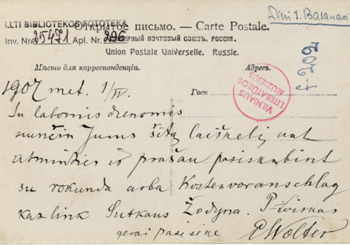 LLTI BIBLIOTEKOS FOTOTEKA
Inv. Nr. 25471 Apl. Nr. 296
Открытое письмо. — Carte Postale.
Dr-ui J. Basanavi
ВСЕМІРНЫЙ ПОЧТОВЫЙ СОЮЗЪ. РОССІЯ.
Union Postale Universelle. Russie.
Мѣсто для корреспонденціи.
Адресъ.
1907 met. 1/IV.
Гоеп
VILNIAUS LITERATŪROS MUZIEJUS
Su labomis dienomis
sunčiu Jums šitą laiškelį ant
atminties ir prašau pasiskubint
su rokunda arba Kostenvoranschlag
kas link Sutkaus Žodyno. P
E. Wolter
gerai